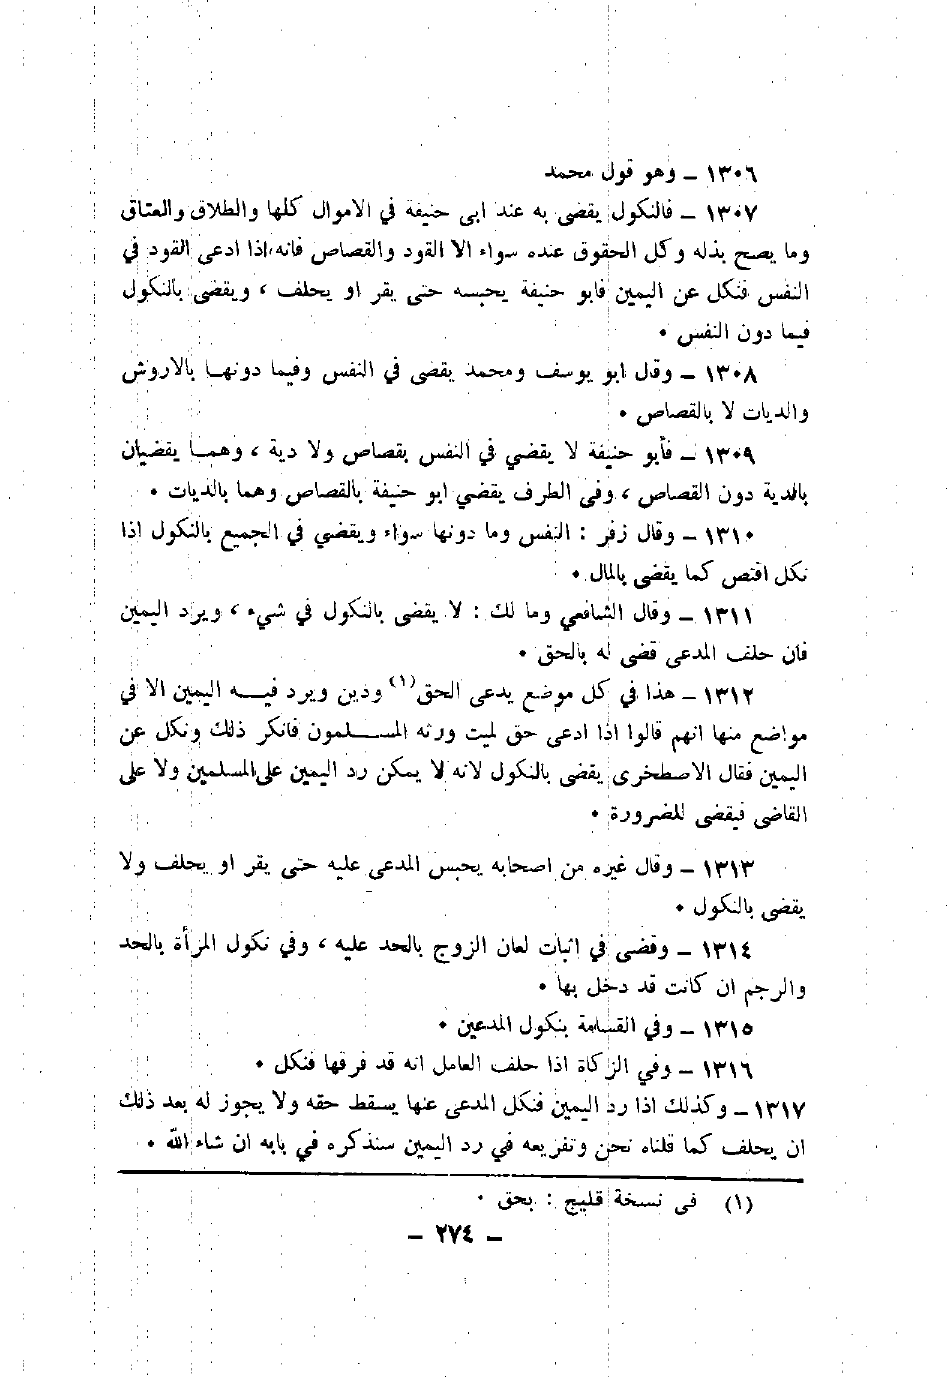 ١٣٠٦ ــ وهو قول محمد
١٣٠٧ ــ فالنكول يقضى به عند ابى حنيفة في الاموال كلها والطلاق والعتاق
وما يصح بذله وكل الحقوق عنده سواء الا القود والقصاص فانه اذا ادعى القود في
النفس فنكل عن اليمين فابو حنيفة يحبسه حتى يقر او يحلف ، ويقضى بالنكول
فيما دون النفس •
١٣٠٨ ــ وقل ابو يوسف ومحمد يقضى في النفس وفيما دونهـا بالاروش
والديات لا بالقصاص •
١٣٠٩ ــ فأبو حنيفة لا يقضي في النفس بقصاص ولا دية ، وهمـا يقضيان
بالدية دون القصاص ، وفى الطرف يقضي ابو حنيفة بالقصاص وهما بالديات •
١٣١٠ ــ وقال زفر : النفس وما دونها سواء ويقضي في الجميع بالنكول اذا
نكل اقتص كما يقضى بالمال •
١٣١١ ــ وقال الشافعي وما لك : لا يقضى بالنكول في شيء ، ويرد اليمين
فان حلف المدعى قضى له بالحق •
١٣١٢ ــ هذا في كل موضع يدعى الحق(١) ودين ويرد فيـــه اليمين الا في
مواضع منها انهم قالوا اذا ادعى حق لميت ورثه المســـلمون فانكر ذلك ونكل عن
اليمين فقال الاصطخرى يقضى بالنكول لانه لا يمكن رد اليمين على المسلمين ولا على
القاضى فيقضى للضرورة •
١٣١٣ ــ وقال غيره من اصحابه يحبس المدعى عليه حتى يقر او يحلف ولا
يقضى بالنكول •
١٣١٤ ــ وقضى في اثبات لعان الزوج بالحد عليه ، وفي نكول المرأة بالحد
والرجم ان كانت قد دخل بها •
١٣١٥ ــ وفي القسامة بنكول المدعين •
١٣١٦ ــ وفي الزكاة اذا حلف العامل انه قد فرقها فنكل •
١٣١٧ ــ وكذلك اذا رد اليمين فنكل المدعى عنها يسقط حقه ولا يجوز له بعد ذلك
ان يحلف كما قلناه نحن وتفريعه في رد اليمين سنذكره في بابه ان شاء الله •
(١) فى نسخة قليج : بحق •
ــ ٢٧٤ ــ